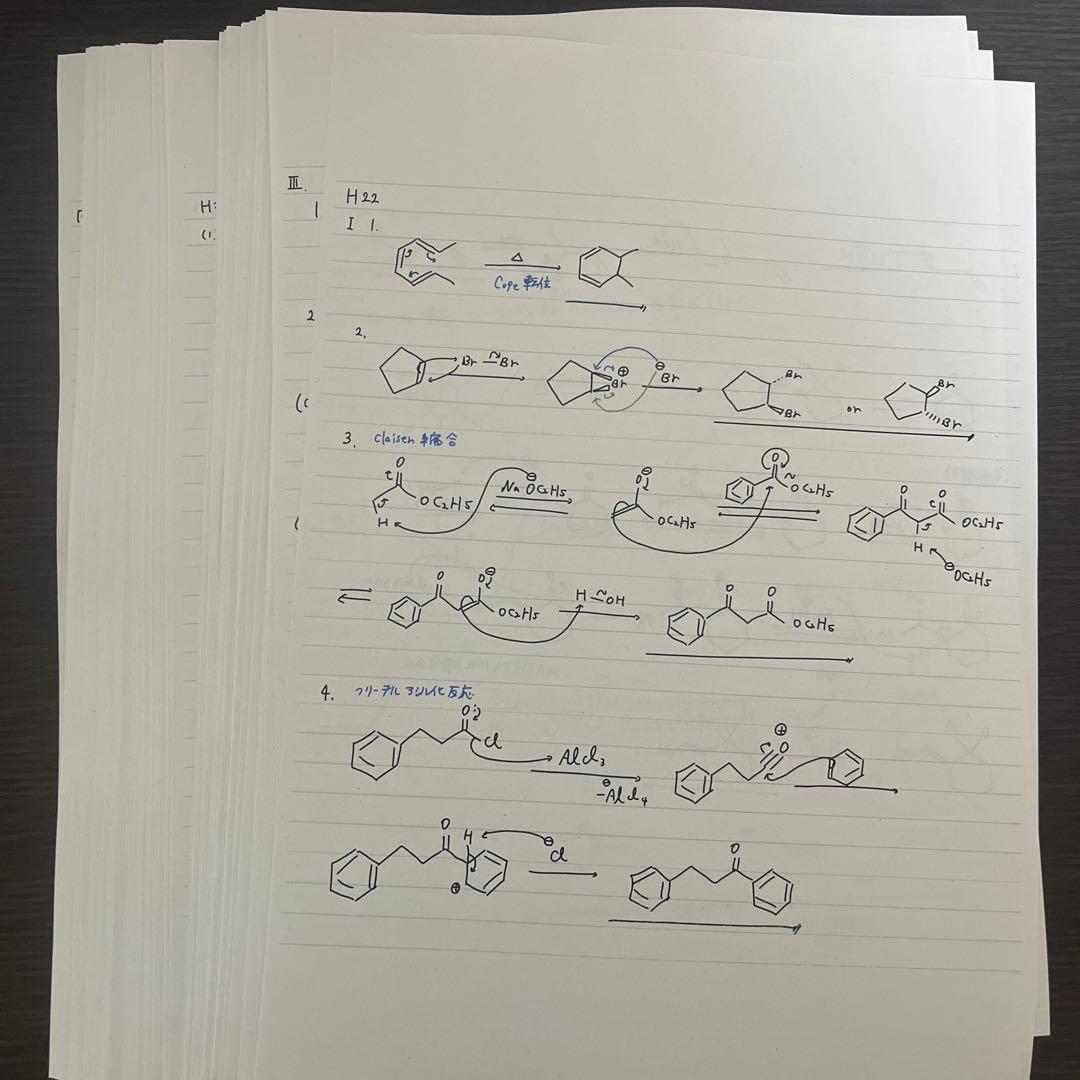 III.
H22
I 1.
Δ
Cope 転位
2
2.
Br―Br
⊕
Br
⊖
Br
Br
Br
or
Br
Br
3. Claisen 縮合
O
OC2H5
H
Na ⊖OC2H5
O⊖
OC2H5
O
OC2H5
O
O
OC2H5
H
⊖OC2H5
O
O⊖
OC2H5
H―OH
O
O
OC2H5
4. フリーデル アシル化 反応
O
Cl
AlCl3
-AlCl4⊖
⊕
O
O
H
⊕
⊖Cl
O